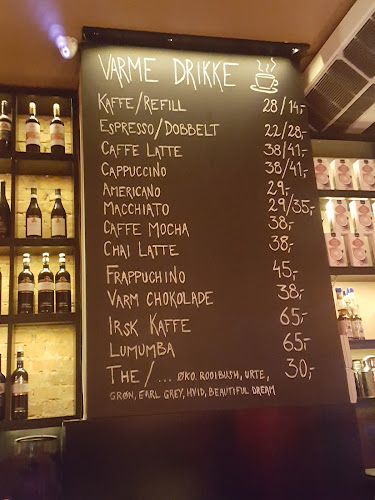 VARME DRIKKE
KAFFE/REFILL 28/14,-
ESPRESSO/DOBBELT 22/28,-
CAFFE LATTE 38/41,-
CAPPUCCINO 38/41,-
AMERICANO 29,-
MACCHIATO 29/35,-
CAFFE MOCHA 38,-
CHAI LATTE 38,-
FRAPPUCHINO 45,-
VARM CHOKOLADE 38,-
IRSK KAFFE 65,-
LUMUMBA 65,-
THE/... ØKO. ROOIBUSH, URTE, 30,-
GRØN, EARL GREY, HVID, BEAUTIFUL DREAM